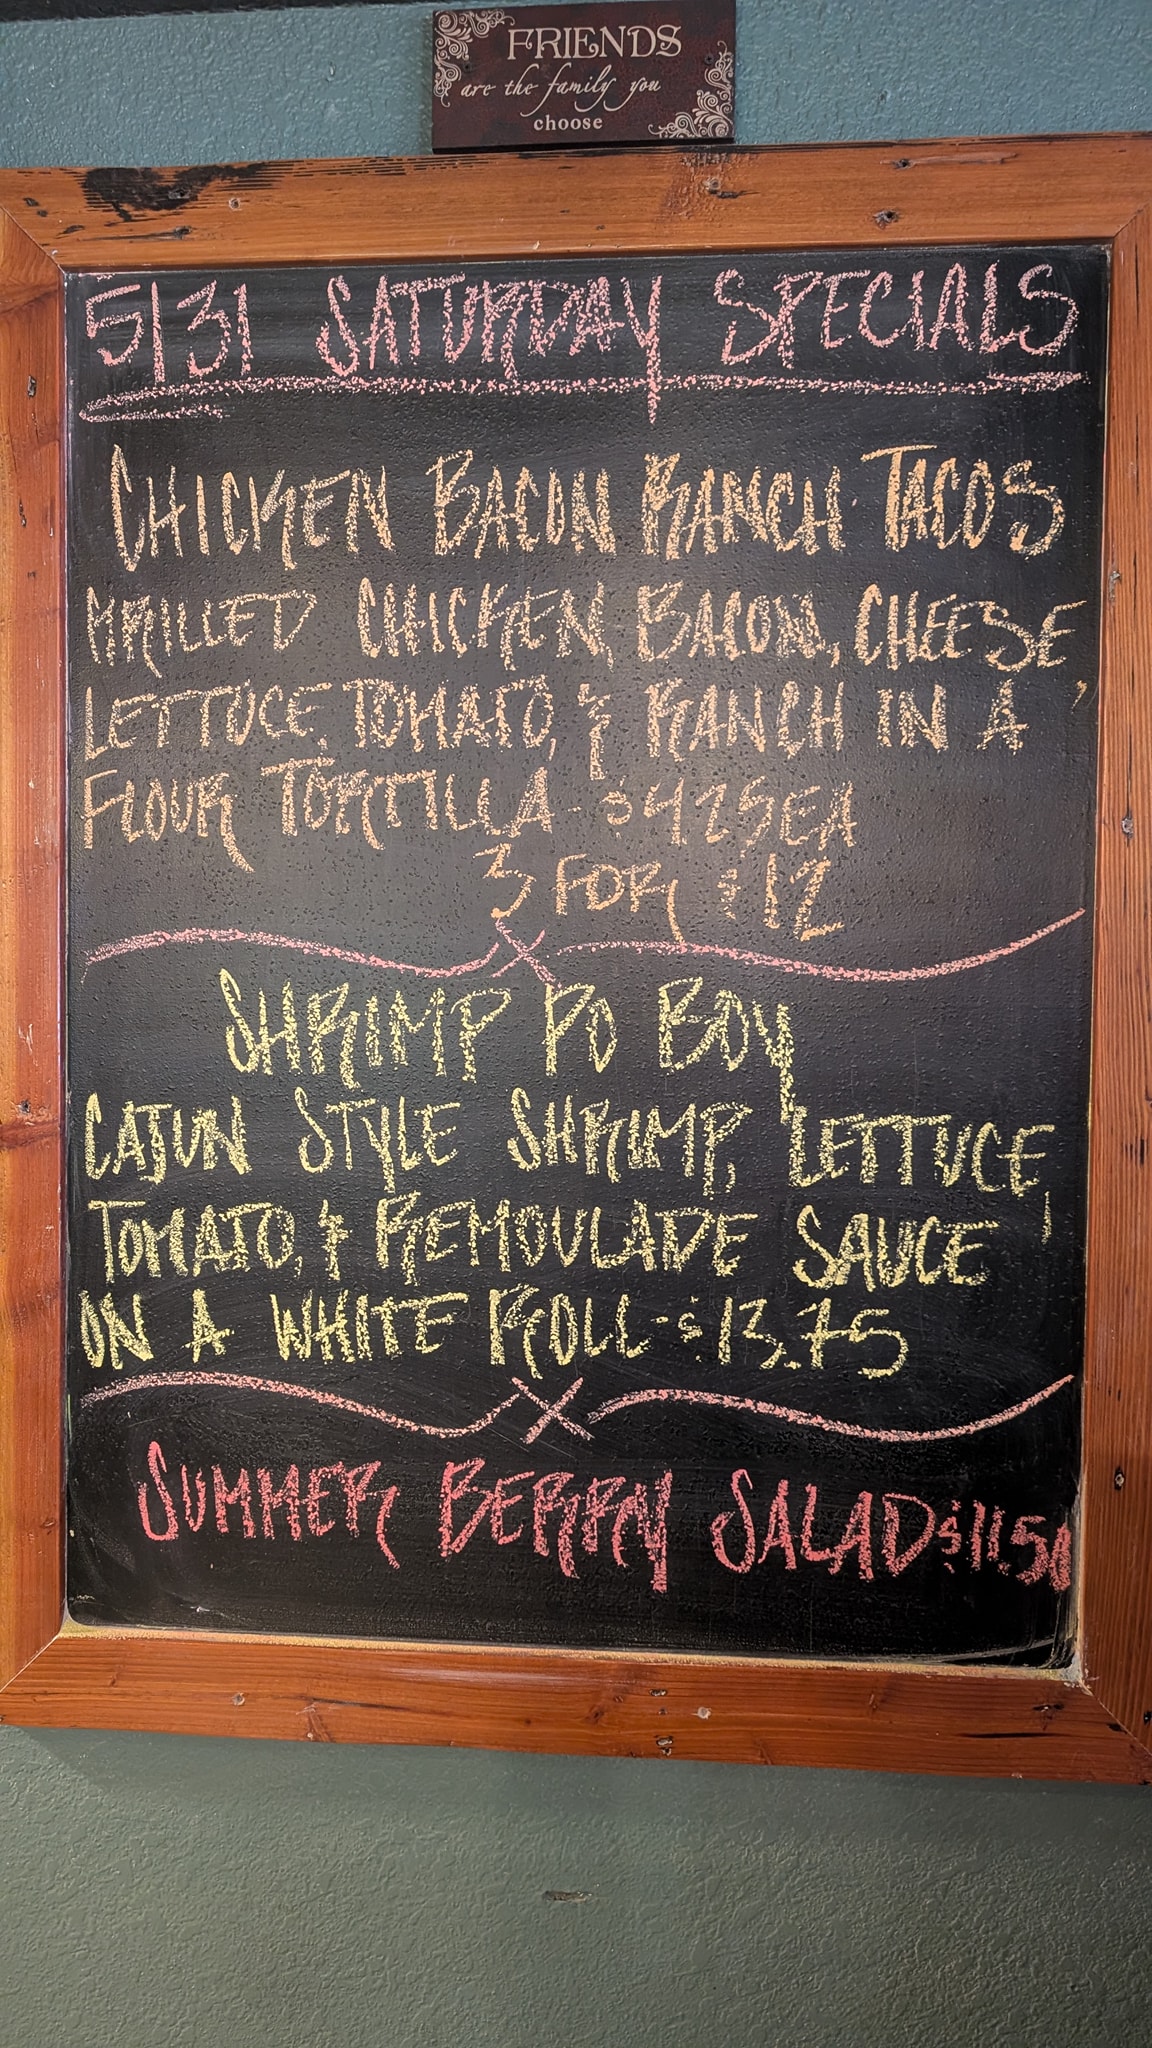 FRIENDS
are the family you
choose
5/31 SATURDAY SPECIALS
CHICKEN BACON RANCH TACOS
GRILLED CHICKEN, BACON, CHEESE,
LETTUCE, TOMATO, & RANCH IN A
FLOUR TORTILLA - $4.25EA
3 FOR $12
SHRIMP PO BOY
CAJUN STYLE SHRIMP, LETTUCE,
TOMATO, & REMOULADE SAUCE
ON A WHITE ROLL - $13.75
SUMMER BERRY SALAD $11.50